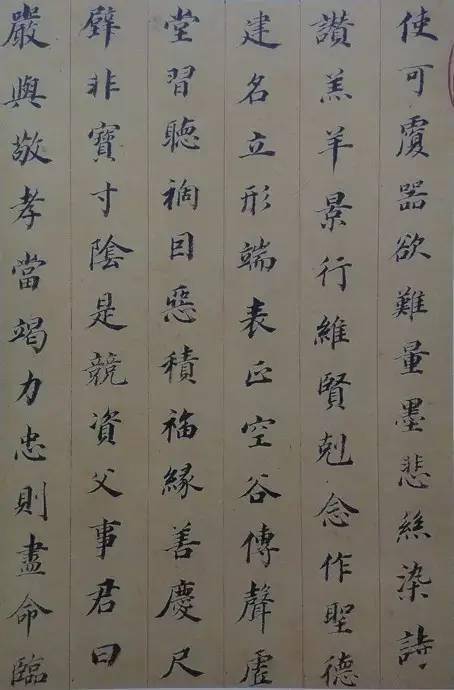 使可覆器欲難量墨悲絲染詩
讚羔羊景行維賢剋念作聖德
建名立形端表正空谷傳聲虛
堂習聽禍因惡積福緣善慶尺
璧非寶寸陰是競資父事君曰
嚴與敬孝當竭力忠則盡命臨